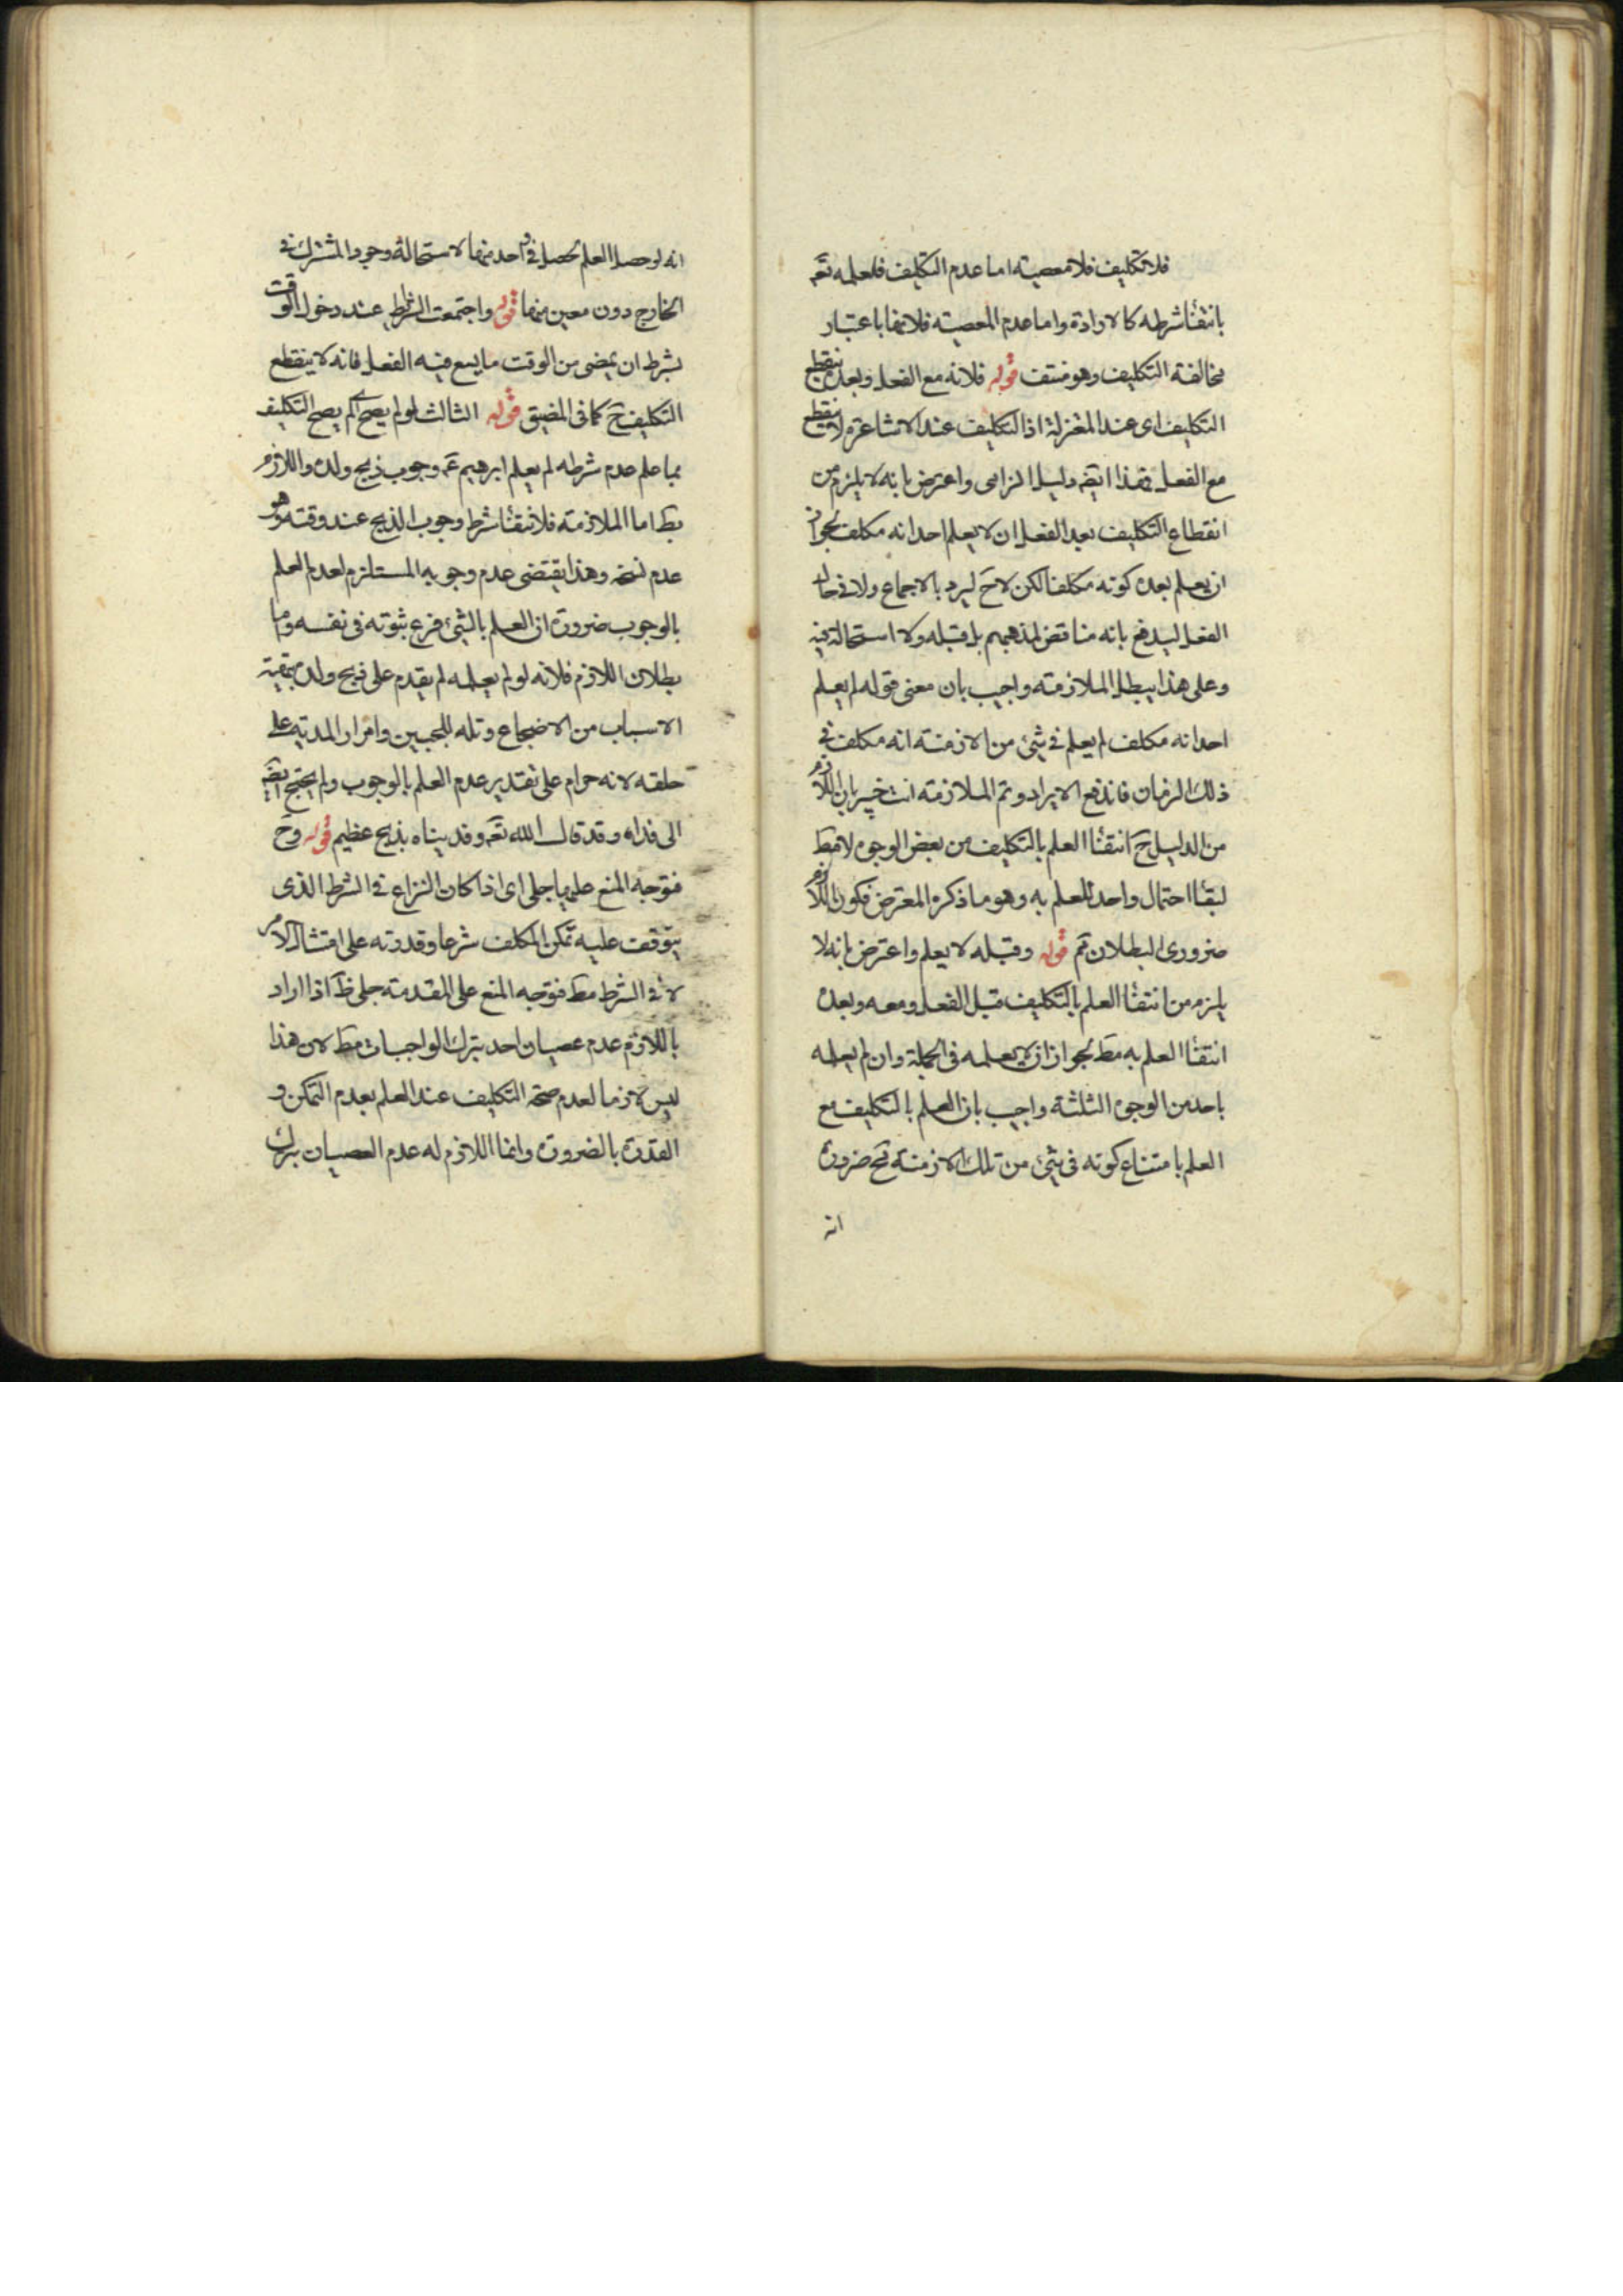 فلا تكليف فلا معصية اما عدم التكليف فلعلمه تعه
بانتفٔا شرطه كالارادة واما عدم المعصية فلانها باعتبار
مخالفة التكليف وهو منتف قوله فلانه مع الفعل وبعده ينقطع
التكليف اى عند المعتزلة اذ التكليف عند الاشاعرة لا ينقطع
مع الفعل فهذا ايضه دليل الزامى واعترض بانه لا يلزم من
انقطاع التكليف بعد الفعل ان لا يعلم احد انه مكلف لجواز
ان يعلم بعده كونه مكلفا لكن لا ح ليرد بالاجماع ولا فى حال
الفعل ليدفع بانه مناقض لمذهبهم بل قبله ولا استحالة فيه
وعلى هذا يبطل الملازمة واجيب بان معنى قوله لم يعلم
احد انه مكلف لم يعلم فى شئ من الازمنة انه مكلف فى
ذلك الزمان فاندفع الايراد وتم الملازمة انت خبير بان اللازم
من الدليل ح انتفٔا العلم بالتكليف من بعض الوجوه لا مط
لبقٔا احتمال واحد للعلم به وهو ما ذكره المعترض فكون اللازم
ضرورى البطلان تم قوله وقبله لا يعلم واعترض بانه لا
يلزم من انتفٔا العلم بالتكليف قبل الفعل ومعه وبعده
انتفٔا العلم به مط لجواز ان يعلمه فى الجملة وان لم يعلمه
باحد من الوجوه الثلثة واجيب بان العلم بالتكليف مع
العلم بامتناع كونه فى شئ من تلك الازمنة مح ضرورة
انه
انه لو حصل العلم لحصل فى واحد منها لاستحالة وجود المشترك فى
الخارج دون معين منها قوله واجتمعت الشرائط عند دخول الوقت
بشرط ان يمضى من الوقت ما يسع فيه الفعل فانه لا ينقطع
التكليف ح كما فى المضيق قوله الثالث لو لم يصح اى لم يصح التكليف
بما علم عدم شرطه لم يعلم ابرهيم ع م وجوب ذبح ولده واللازم
بط اما الملازمة فلانتفٔا شرط وجوب الذبح عند وقته وهو
عدم نسخه وهذا يقتضى عدم وجوبه المستلزم لعدم العلم
بالوجوب ضرورة ان العلم بالشئ فرع ثبوته فى نفسه واما
بطلان اللازم فلانه لو لم يعلمه لم يقدم على ذبح ولده بتهيئة
الاسباب من الاضجاع وتله للجبين وامرار المدية على
حلقه لانه حرام على تقدير عدم العلم بالوجوب ولم يحتج ايضه
الى فداء وقد قال الله تعه وفديناه بذبح عظيم قوله وح
فتوجه المنع عليها جلى اى اذا كان النزاع فى الشرط الذى
يتوقف عليه تمكن المكلف شرعا وقدرته على امتثال الامر
لا فى الشرط مط فتوجه المنع على المقدمة جلى ظ اذا اراد
باللازم عدم عصيان احد بترك الواجبات مط لان هذا
ليس لازما لعدم صحة التكليف عند العلم بعدم التمكن و
القدرة بالضرورة وانما اللازم له عدم العصيان بترك